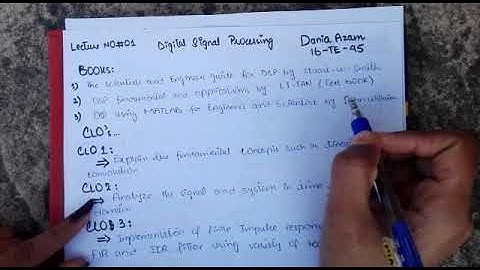 Lecture NO#01 Digital Signal Processing Dania Azam
16-TE-45
BOOKS:
1) The scientist and Engineer guide for DSP by W. Smith
2) DSP fundamental and applications by LI-TAN (Text book)
3) DSP using MATLAB for Engineers and Scientist by
CLO's...
CLO 1:
⇒ Explain the fundamental concepts such as
convolution
CLO 2:
⇒ Analyze the signal and system in time
domain
CLO 3:
⇒ Implementation of finite Impulse respon
FIR and IIR filter using variety of